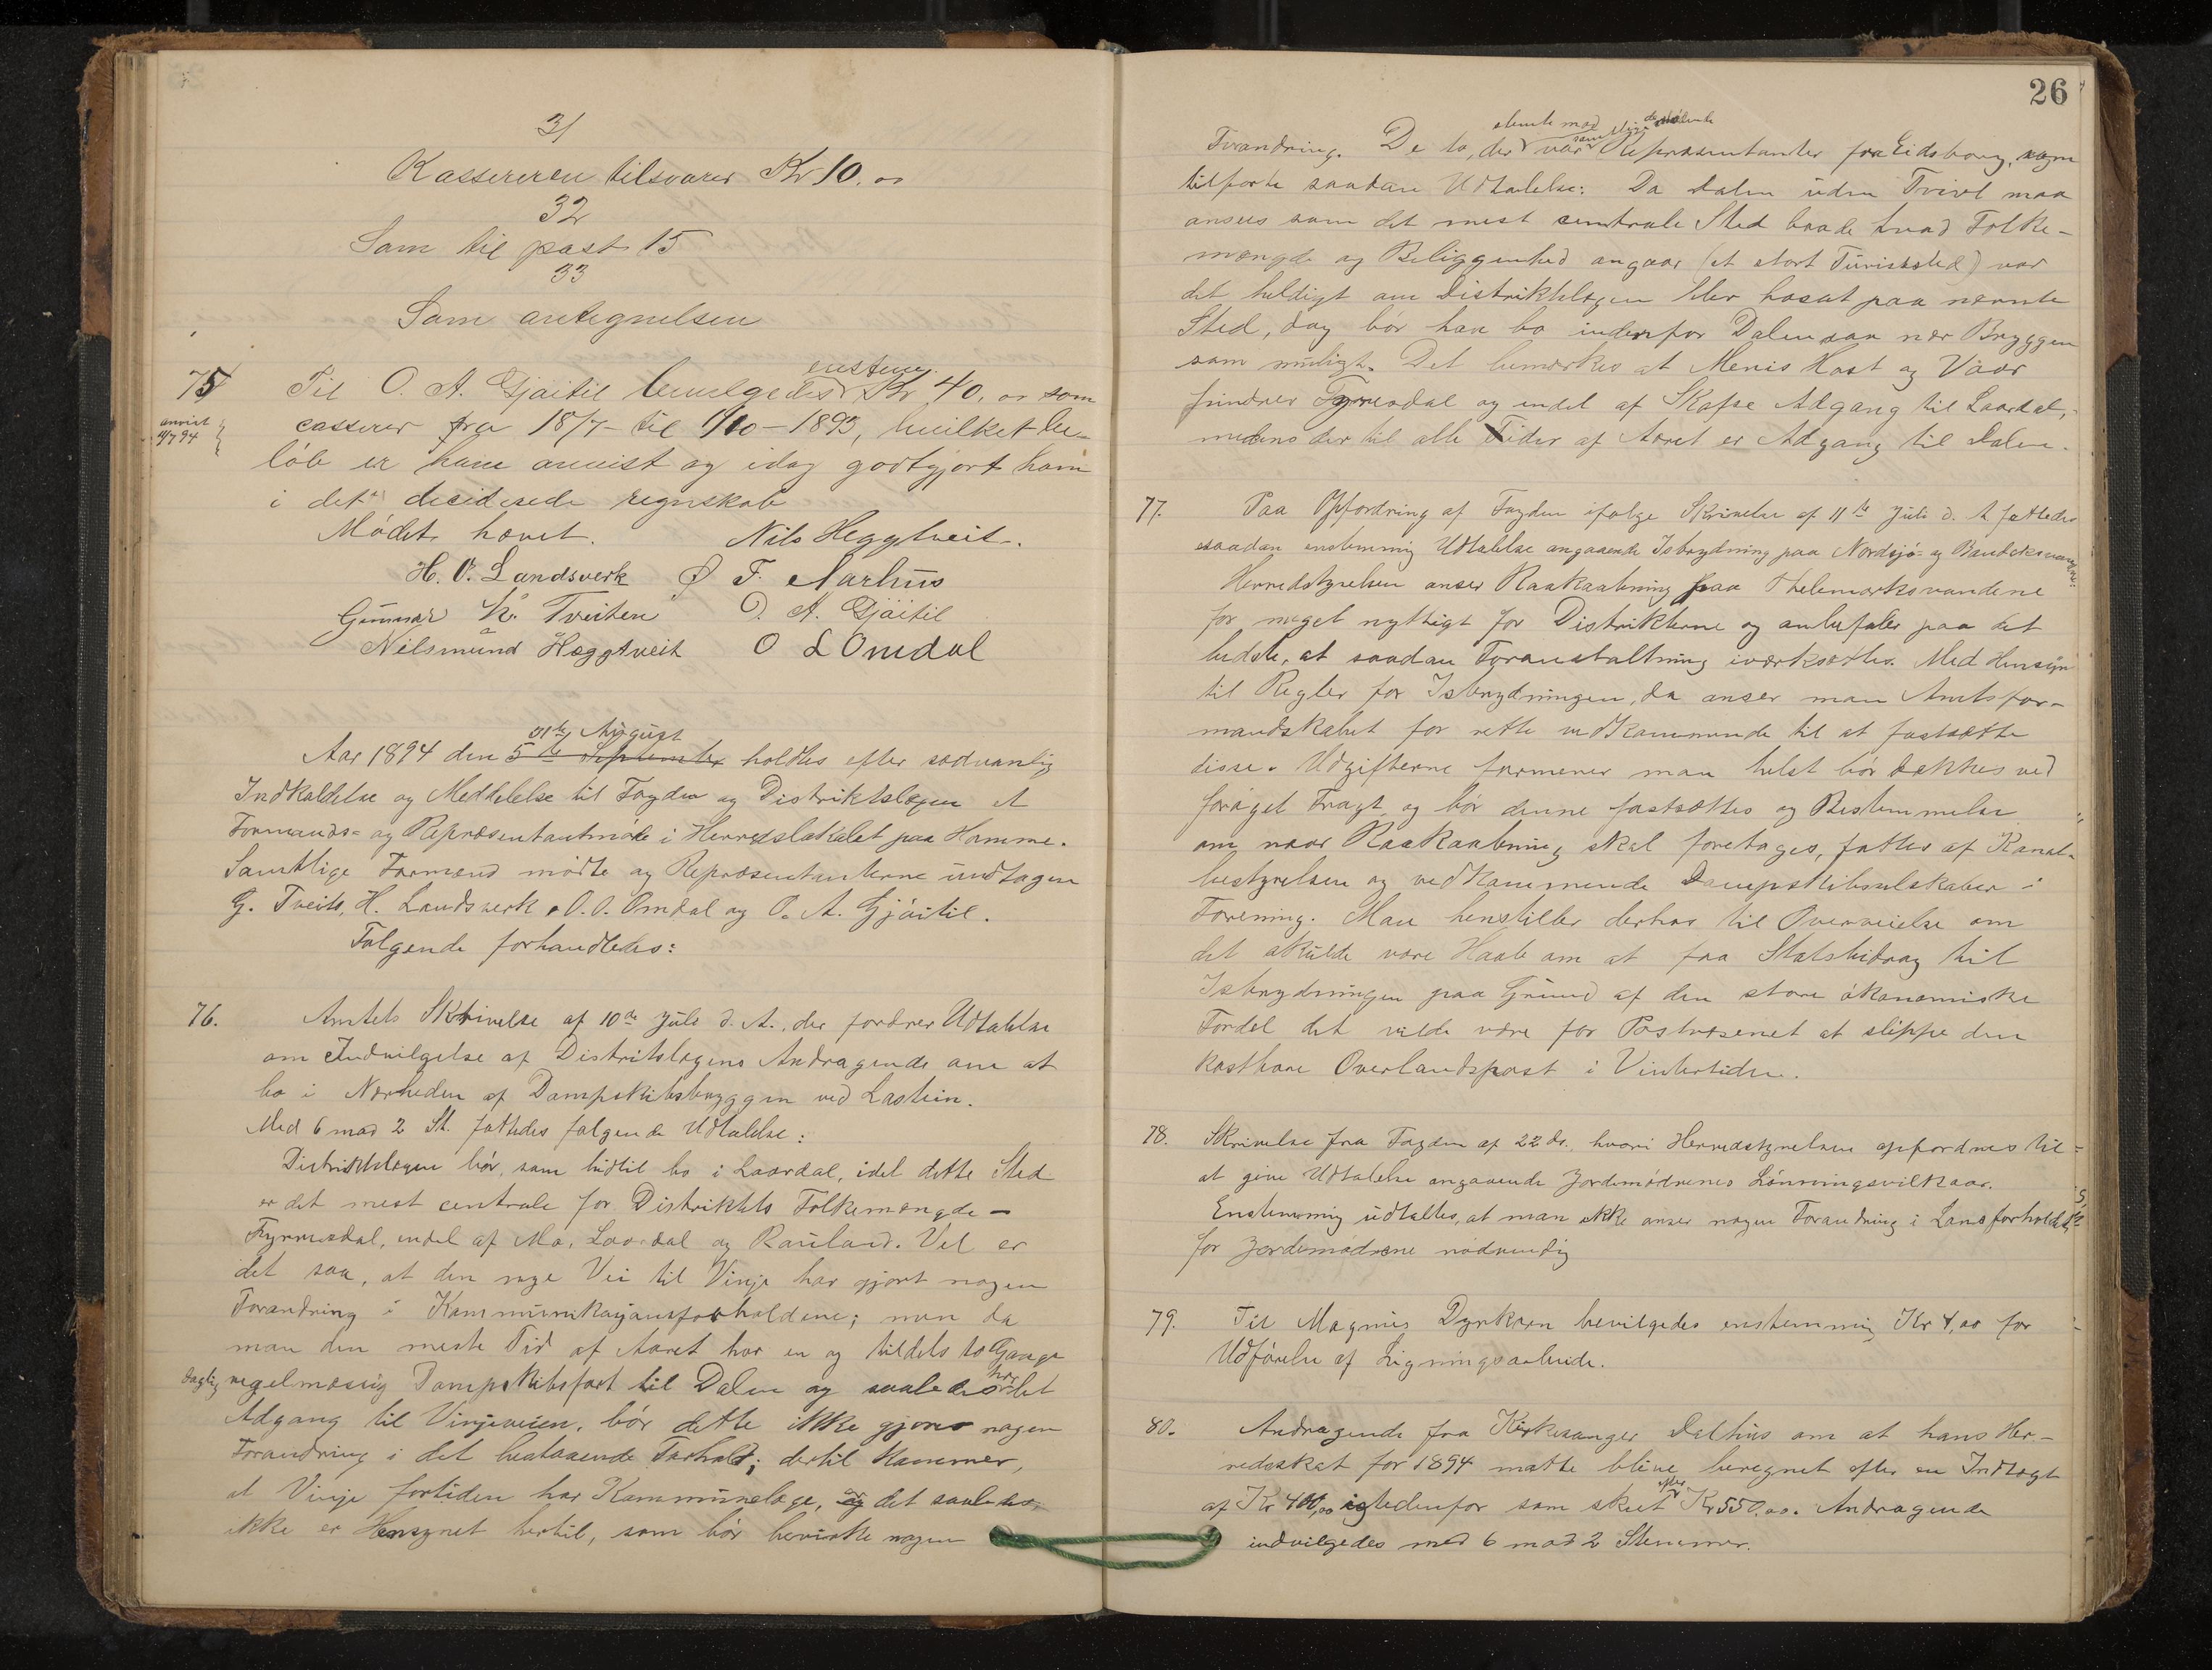 31
Kassereren tilsvarer Kr 10.00
32
Som til post 15
33
Som antegnelsen
75 Til O. A. Gjøitil bevilgedes enstem. Kr 40.00 som
anvist 4/9 94
casserer fra 18/7 til 1/10 - 1893, hvilket be-
löb er ham anvist og idag godtgjort ham
i det deciderede regnskab
Mödet hævet. Nils Heggtveit.
H. O. Landsverk Ø F. Aarhus
Gunnar K. Tveiten O. A. Gjøitil
Nilsmund Hæggtveit O L Omdal
31te August
Aar 1894 den 5te September holdtes efter sædvanlig
Indkaldelse og Meddelelse til Fogden og Distriktslægen et
Formands- og Repræsentantmöde i Herredslokalet paa Homme.
Samtlige Formænd mödte og Repræsentanterne undtagen
G. Tveito, H. Landsverk, O. O. Omdal og O. A. Gjöitil.
Følgende forhandledes:
76. Amtets Skrivelse af 10de Juli d. A., der fordrer Udtalelse
om Indvilgelse af Distritslægens Andragende om at
bo i Nærheden af Dampskibsbryggen ved Lastein.
Med 6 mod 2 St. fattedes følgende Udtalelse:
Distriktslægen bör, som hidtil bo i Laardal, idet dette Sted
er det mest centrale for Distriktets Folkemængde -
Fyrresdal, endel af Mo, Laardal og Rauland. Vel er
det saa, at den nye Vei til Vinje har gjort nogen
Forandring i Kommunikasjonsforholdene; men da
man den meste Tid af Aaret har en og tildels to Gange
daglig regelmæssig Dampskibsfart til Dalen og saaledes har let
Adgang til Vinjeveien, bör dette ikke gjøres nogen
Forandring i det bestaaende Forhold; dertil kommer,
at Vinje fortiden har Kommunelæge, og det saaledes
ikke er Hensynet hertil, som bör bevirke nogen
26
stemte mod samtlige de
Forandring. De to, der var Repræsentanter fra Eidsborg,
tilförte saadan Udtalelse: Da Dalen uden Tvivl maa
ansees som det mest centrale Sted baade hvad Folke-
mængde og Beliggenhed angaar (et stort Turiststed) var
det heldigt om Distriktslægen blev bosat paa nævnte
Sted, dog bör han bo indenfor Dalen saa nær Bryggen
som muligt. Det bemærkes at Menis Höst og Vaar
hindrer Fyresdal og endel af Skafse Adgang til Laardal,
medens der til alle Tider af Aaret er Adgang til Dalen.
77. Paa Opfordring af Fogden ifølge Skrivelse af 11te Juli d. A. fattedes
saadan enstemmig Udtalelse angaaende Isbrydning paa Nordsjö- og Bandaksvandene:
Herredstyrelsen anser Raakaabning paa Thelemarksvandene
for meget nyttigt for Distrikterne og anbefaler paa det
bedste, at saadan Foranstaltning iværksættes. Med Hensyn
til Regler for Isbrydningen, da anser man Amtsfor-
mandskabet for rette vedkommende til at fastsætte
disse. Udgifterne formener man helst bör dækkes ved
foröget Fragt og bör denne fastsættes og Bestemmelse
om naar Raakaabning skal foretages, fattes af Kanal-
bestyrelsen og vedkommende Dampskibsselskaber i
Forening. Man henstiller derhos til Overveielse om
det skulde være Haab om at faa Statsbidrag til
Isbrydningen paa Grund af den store ökonomiske
Fordel det vilde være for Postvæsenet at slippe den
kostbare Overlandspost i Vintertiden.
78. Skrivelse fra Fogden af 22 ds. hvori Herredstyrelsen opfordres til
at give Udtalelse angaaende Jordemödrenes Lönningsvilkaar.
Enstemmig udtaltes, at man ikke anser nogen Forandring i Lønsforholdet
for Jordemödrene nödvendig
79. Til Magnus Dyrkorn bevilgedes enstemmig Kr 4,00 for
Udförelse af Ligningsarbeide.
80. Andragende fra Kirkesanger Dalhus om at hans Her-
redsskat for 1894 maatte blive beregnet efter en Indtægt
af Kr 400,00 istedenfor som skeet efter Kr 550,00. Andragende
indvilgedes med 6 mod 2 Stemmer.